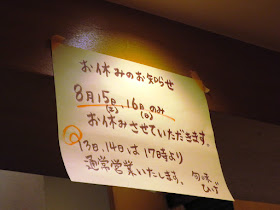 お休みのお知らせ
8月15日(土)、16日(日)のみ
お休みさせていただきます。
13日、14日は17時より
通常営業いたします。 旬味
ひげ